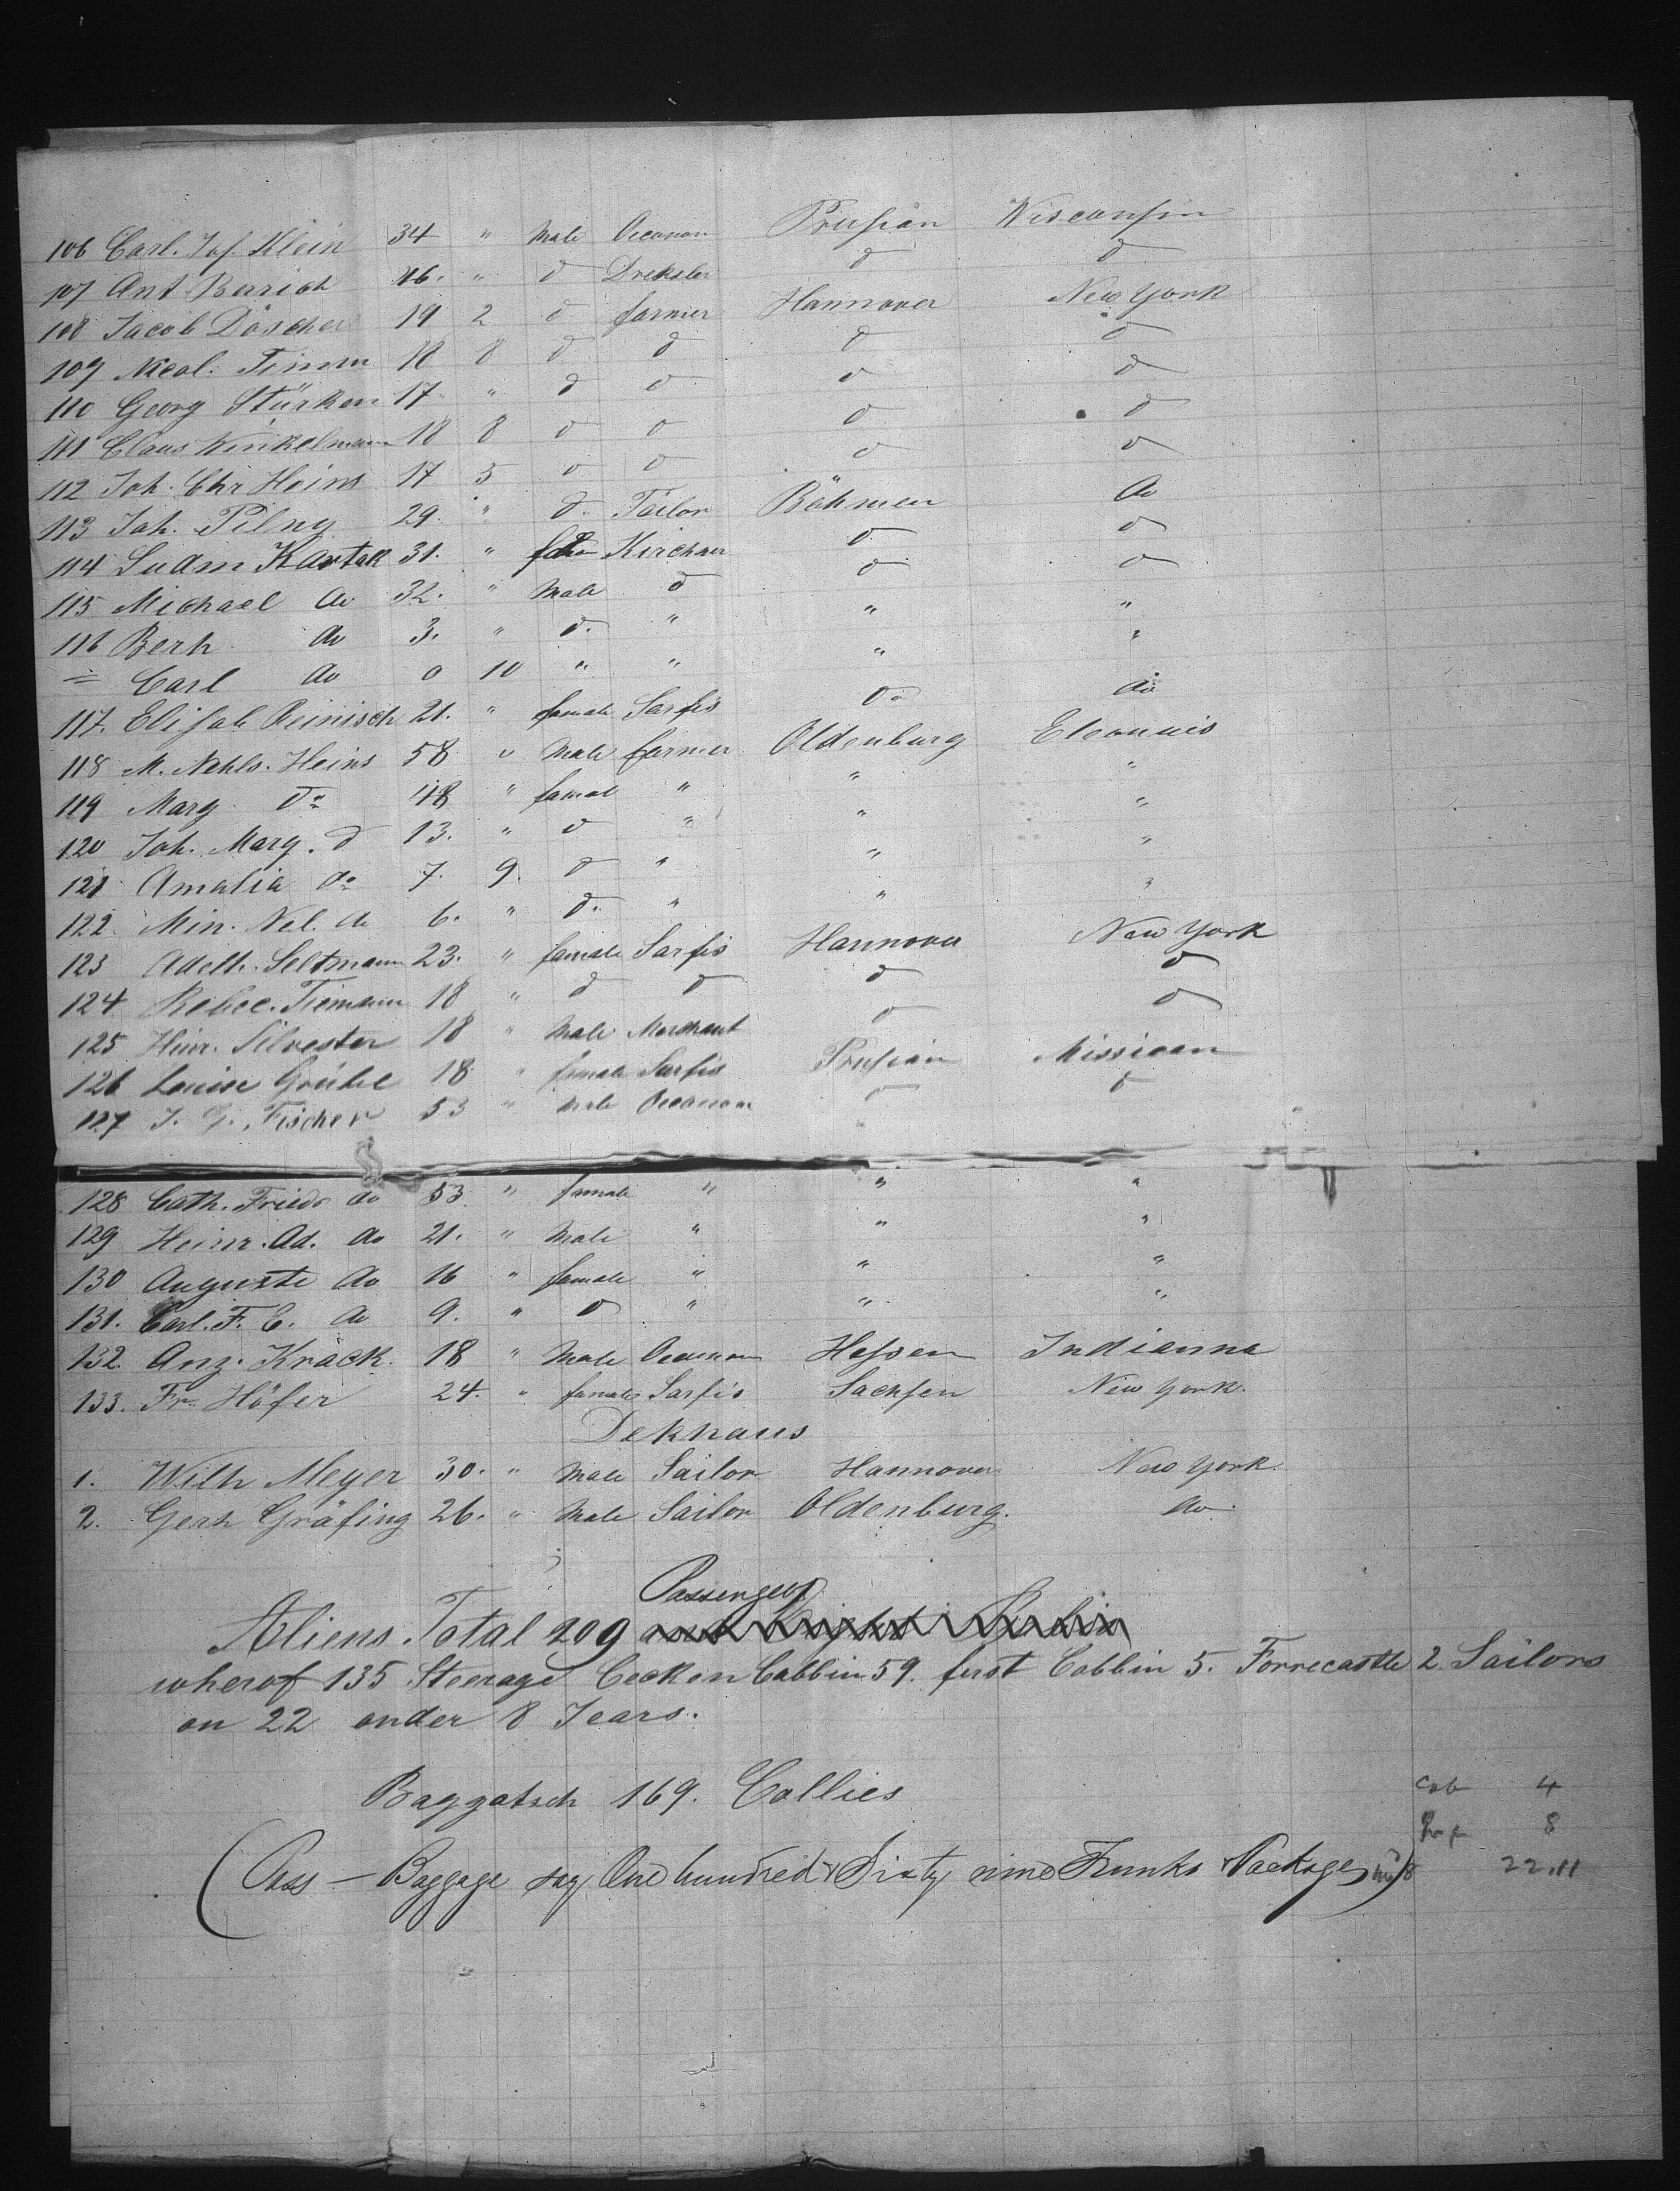 106 Carl. Jos. Klein 34 " Male Oeconom Prussian Wisconsin
107 Ant Berrich 46. " d Dreksler d d
108 Jacob Döscher 19 2 d farmer Hannover New York
109 Nicol. Timm 18 8 d d d d
110 Georg Stürken 17 " d d d d
111 Claus Winkelmann 18 8 d d d d
112 Joh. Chr Heins 17 5 d d d d
113 Joh. Pilny 29. " d. Tailor Böhmen do
114 Ludm Kartak 31. " Kirchner d d
115 Michael do 32. " Male d d d
116 Berh do 3. " d. " " "
= Carl do 0 10 " " " "
117. Elisab Reinisch 21. " female Sarfis do do
118 M. Nehls. Heins 58 " Male farmer Oldenburg Eleonuis
119 Marg do 48 " femal " " "
120 Joh. Marg. d 13. " d " " "
121 Amalia do 7. 9. d " " "
122. Min. Nel. do 6. " d. " " "
123 Adelh. Seltmann 23. " female Sarfis Hannover New York
124 Rebec. Tiemann 18 " d d d d
125 Hinr. Silvester 18 " Male Merchant d d
126 Louise Grübel 18 " female Sarfis Prussian Missican
127 J. G. Fischer 53 " Male Oeconom d d
128 Cath. Friedr do 53 " female " " "
129 Heinr. Ad. do 21. " Male " " "
130 Auguste do 16 " female " " "
131. Carl. F. E. do 9. " d " " "
132. Anz. Krack. 18 " Male Oeconom Hessen Indianna
133. Fr. Höfer 24. " female Sarfis Sachsen New York.
Dekhaus
1. Wilh Meyer 30. " Male Sailor Hannover New York.
2. Gerh Gräfing 26. " Male Sailor Oldenburg. do
Passengers
Aliens. Total 209
wherof 135 Steerage Cecken Cabbin 59. first Cabbin 5. Forrecastle 2 Sailors
on 22 onder 8 Jears.
Baggatsch 169. Collies
Cab 4
8
(Pass - Baggage say One hundred & Sixty nine Trunks & Packages) 22.11